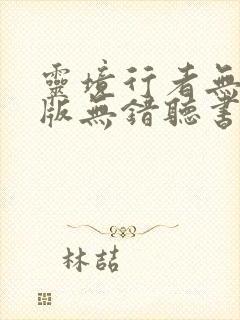 靈境行者無
版無錯聽書
林喆